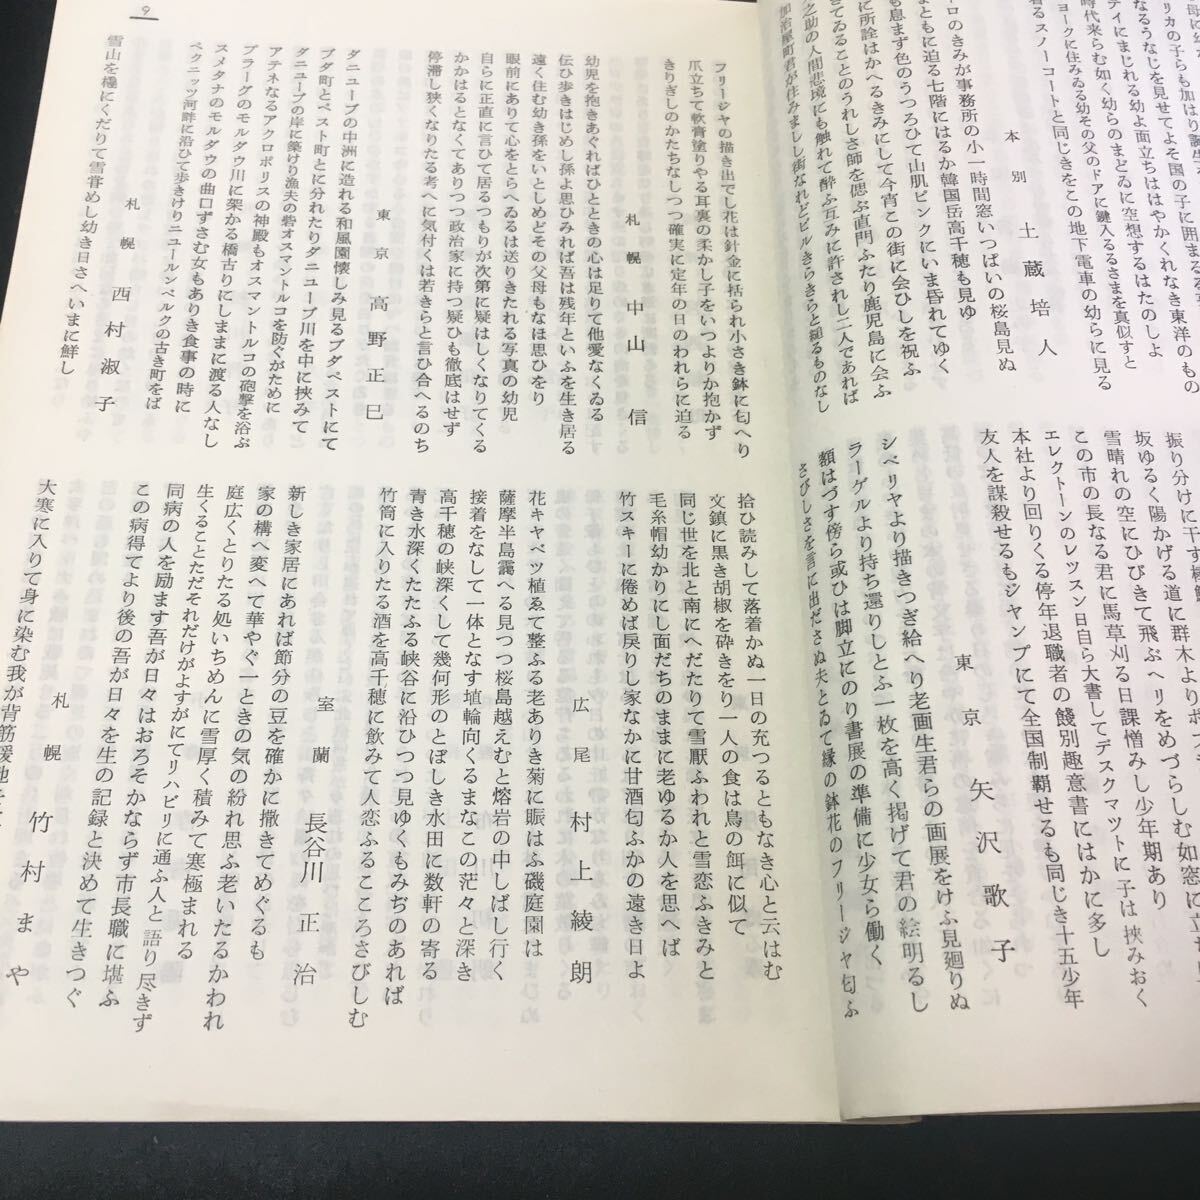 時代来らむ如く幼らのまどゐに空想するはたのしよ
ヨークに住みゐる幼その父のドアに鍵入るるさまを真似すと
着るスノーコートと同じきをこの地下電車の幼らに見る
本別 土蔵培人
ーロのきみが事務所の小一時間窓いつぱいの桜島見ぬ
まともに迫る七階にはるか韓国岳高千穂も見ゆ
も息まず色のうつろひて山肌ピンクにいま昏れてゆく
に所詮はかへるきみにして今宵この街に会ひしを祝ふ
きてゐることのうれしさ師を偲ぶ直門ふたり鹿児島に会ふ
之助の人間悲境にも触れて酔ふ互みに許されし二人であれば
加治屋町君が住みましし街なれどビルきらきらと紐るるものなし
坂ゆるく陽かげる道に群木より
雪晴れの空にひびきて飛ぶヘリをめづらしむ如窓に立
この市の長なる君に馬草刈る日課憎みし少年期あり
エレクトーンのレツスン日自ら大書してデスクマツトに子は挟みおく
本社より回りくる停年退職者の餞別趣意書にはかに多し
友人を謀殺せるもジヤンプにて全国制覇せるも同じき十五少年
東京 矢沢歌子
シベリヤより描きつぎ給へり老画生君らの画展をけふ見廻りぬ
ラーゲルより持ち還りしとふ一枚を高く掲げて君の絵明るし
額はづす傍ら或ひは脚立にのり書展の準備に少女ら働く
さびしさを言に出ださぬ夫とゐて縁の鉢花のフリージヤ匂ふ
9
フリージヤの描き出でし花は針金に括られ小さき鉢に匂へり
爪立ちて軟膏塗りやる耳裏の柔かし子をいつよりか抱かず
きりぎしのかたちなしつつ確実に定年の日のわれらに迫る
札幌 中山信
幼児を抱きあぐればひとときの心は足りて他愛なくゐる
伝ひ歩きはじめし孫よ思ひみれば吾は残年といふを生き居る
遠く住む幼き孫をいとしめどその父母もなほ思ひをり
眼前にありて心をとらへゐるは送りきたれる写真の幼児
自らに正直に言ひて居るつもりが次第に疑はしくなりてくる
かかはるとなくてありつつ政治家に持つ疑ひも徹底はせず
停滞し狭くなりたる考へに気付くは若きらと言ひ合へるのち
東京 高野正巳
ダニューブの中洲に造れる和風園懐しみ見るブダペストにて
ブダ町とペスト町とに分れたりダニューブ川を中に挟みて
ダニューブの岸に築けり漁夫の砦オスマントルコを防ぐがために
アテネなるアクロポリスの神殿もオスマントルコの砲撃を浴ぶ
プラーグのモルダウ川に架かる橋古りにしままに渡る人なし
スメタナのモルダウの曲口ずさむ女もありき食事の時に
ペクニッツ河畔に沿ひて歩きけりニュールンベルクの古き町をば
札幌 西村淑子
雪山を橇にくだりて雪甞めし幼き日さへいまに鮮し
拾ひ読みして落着かぬ一日の充つるともなき心と云はむ
文鎮に黒き胡椒を砕きをり一人の食は鳥の餌に似て
同じ世を北と南にへだたりて雪厭ふわれと雪恋ふきみと
毛糸帽幼かりにし面だちのままに老ゆるか人を思へば
竹スキーに倦めば戻りし家なかに甘酒匂ふかの遠き日よ
広尾 村上綾朗
花キヤベツ植ゑて整ふる老ありき菊に賑はふ磯庭園は
薩摩半島靄へる見つつ桜島越えむと熔岩の中しばし行く
接着をなして一体となす埴輪向くるまなこの茫々と深き
高千穂の峡深くして幾何形のとぼしき水田に数軒の寄る
青き水深くたたふる峡谷に沿ひつつ見ゆくもみぢのあれば
竹筒に入りたる酒を高千穂に飲みて人恋ふるこころさびしむ
室蘭 長谷川正治
新しき家居にあれば節分の豆を確かに撒きてめぐるも
家の構へ変へて華やぐ一ときの気の紛れ思ふ老いたるかわれ
庭広くとりたる処いちめんに雪厚く積みて寒極まれる
生くることただそれだけがよすがにてリハビリに通ふ人と語り尽きず
同病の人を励ます吾が日々はおろそかならず市長職に堪ふ
この病得てより後の吾が日々を生の記録と決めて生きつぐ
札幌 竹村まや
大寒に入りて身に染む我が背筋